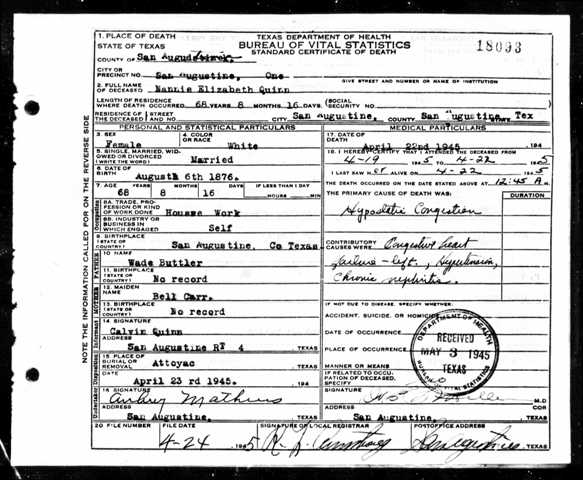 TEXAS DEPARTMENT OF HEALTH
BUREAU OF VITAL STATISTICS
STANDARD CERTIFICATE OF DEATH
18093
1. PLACE OF DEATH
STATE OF TEXAS
COUNTY OF San Augustine,
CITY OR PRECINCT NO. San Augustine, One
GIVE STREET AND NUMBER OR NAME OF INSTITUTION
2. FULL NAME OF DECEASED Nannie Elizabeth Quinn
LENGTH OF RESIDENCE WHERE DEATH OCCURRED 68 YEARS 8 MONTHS 16 DAYS (SOCIAL SECURITY NO.
RESIDENCE OF THE DECEASED STREET AND NO. San Augustine, COUNTY San Augustine, STATE Tex
PERSONAL AND STATISTICAL PARTICULARS
3. SEX Female
4. COLOR OR RACE White
5. SINGLE, MARRIED, WIDOWED OR DIVORCED (WRITE THE WORD) Married
6. DATE OF BIRTH August 6th 1876.
7. AGE 68 YEARS 8 MONTHS 16 DAYS IF LESS THAN 1 DAY HOURS MIN
8A. TRADE, PROFESSION OR KIND OF WORK DONE Housse Work
8B. INDUSTRY OR BUSINESS IN WHICH ENGAGED Self
9. BIRTHPLACE (STATE OR COUNTRY) San Augustine, Co Texas
10. NAME Wade Buttler
11. BIRTHPLACE (STATE OR COUNTRY) No record
12. MAIDEN NAME Bell Carr.
13. BIRTHPLACE (STATE OR COUNTRY) No record
14. SIGNATURE Calvin Quinn
ADDRESS San Augustine Rt 4 TEXAS
15. PLACE OF BURIAL OR REMOVAL Attoyac TEXAS
DATE April 23 rd 1945. 194
16. SIGNATURE Aubry Mathews
ADDRESS San Augustine. TEXAS
MEDICAL PARTICULARS
17. DATE OF DEATH April 22nd 1945 194
18. I HEREBY CERTIFY THAT I ATTENDED THE DECEASED FROM
4-19 1945 TO 4-22 1945
I LAST SAW her ALIVE ON 4-22 1945
THE DEATH OCCURRED ON THE DATE STATED ABOVE AT 12:45 A.M.
THE PRIMARY CAUSE OF DEATH WAS: DURATION
Hypostatic Congestion
CONTRIBUTORY CAUSES WERE: Congestive heart
failure - left., Hypertension,
Chronic nephritis.
IF NOT DUE TO DISEASE, SPECIFY WHETHER:
ACCIDENT, SUICIDE, OR HOMICIDE
DATE OF OCCURRENCE
PLACE OF OCCURRENCE
MANNER OR MEANS
IF RELATED TO OCCUPATION OF DECEASED, SPECIFY
SIGNATURE M.D. OR COR
ADDRESS San Augustine. TEXAS
DEPARTMENT OF HEALTH
RECEIVED
MAY 3 1945
TEXAS
BUREAU OF VITAL STATISTICS
20 FILE NUMBER
FILE DATE 4-24 1945
SIGNATURE OF LOCAL REGISTRAR
POSTOFFICE ADDRESS San Augustine TEXAS
NOTE THE INFORMATION CALLED FOR ON THE REVERSE SIDE
Occupation
FATHER
MOTHER
Informant
Undertaker